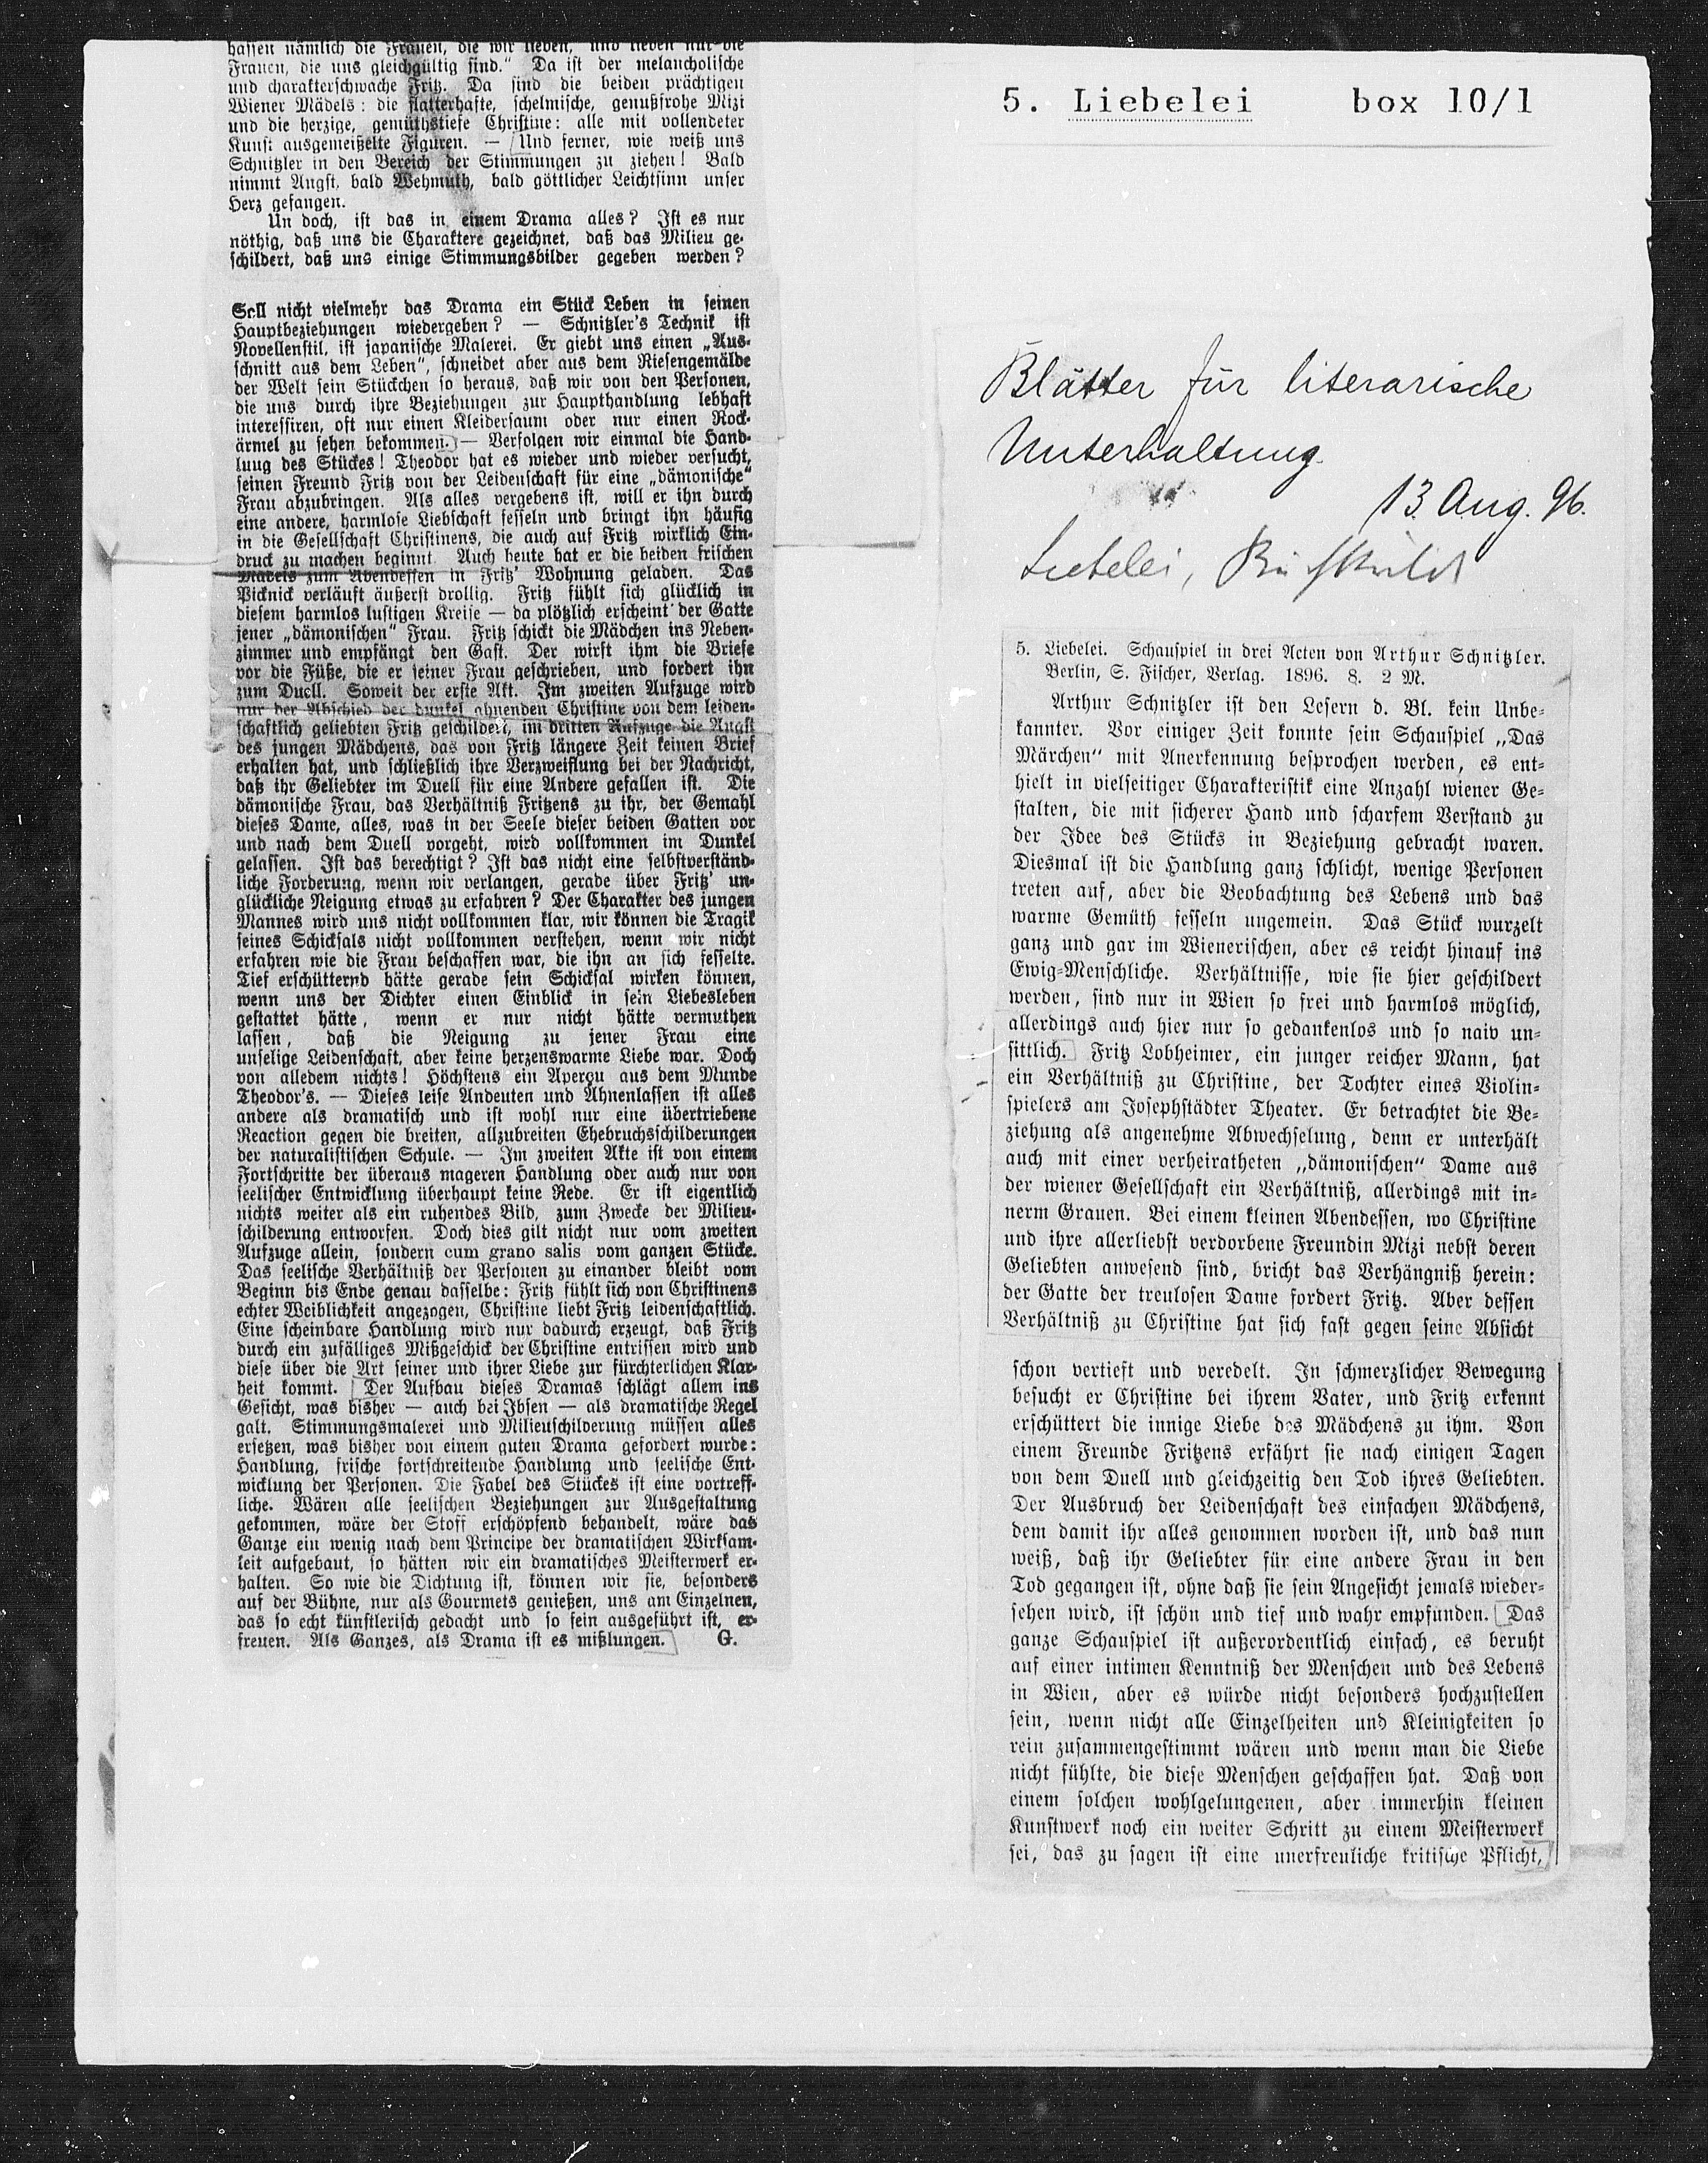 hassen nämlich die Frauen, die wir lieben, und lieben nur die
Frauen, die uns gleichgültig sind.“ Da ist der melancholische
und charakterschwache Fritz. Da sind die beiden prächtigen
Wiener Mädels: die flatterhafte, schelmische, genußfrohe Mizi
und die herzige, gemüthstiefe Christine: alle mit vollendeter
Kunst ausgemeißelte Figuren. — Und ferner, wie weiß uns
Schnitzler in den Bereich der Stimmungen zu ziehen! Bald
nimmt Angst, bald Wehmuth, bald göttlicher Leichtsinn unser
Herz gefangen.
Un doch, ist das in einem Drama alles? Ist es nur
nöthig, daß uns die Charaktere gezeichnet, daß das Milieu ge-
schildert, daß uns einige Stimmungsbilder gegeben werden?
Soll nicht vielmehr das Drama ein Stück Leben in seinen
Hauptbeziehungen wiedergeben? — Schnitzler's Technik ist
Novellenstil, ist japanische Malerei. Er giebt uns einen „Aus-
schnitt aus dem Leben“, schneidet aber aus dem Riesengemälde
der Welt sein Stückchen so heraus, daß wir von den Personen,
die uns durch ihre Beziehungen zur Haupthandlung lebhaft
interessiren, oft nur einen Kleidersaum oder nur einen Rock-
ärmel zu sehen bekommen. — Verfolgen wir einmal die Hand-
lung des Stückes! Theodor hat es wieder und wieder versucht,
seinen Freund Fritz von der Leidenschaft für eine „dämonische“
Frau abzubringen. Als alles vergebens ist, will er ihn durch
eine andere, harmlose Liebschaft fesseln und bringt ihn häufig
in die Gesellschaft Christinens, die auch auf Fritz wirklich Ein-
druck zu machen beginnt. Auch heute hat er die beiden frischen
Mädels zum Abendessen in Fritz' Wohnung geladen. Das
Picknick verläuft äußerst drollig. Fritz fühlt sich glücklich in
diesem harmlos lustigen Kreise — da plötzlich erscheint der Gatte
jener „dämonischen“ Frau. Fritz schickt die Mädchen ins Neben-
zimmer und empfängt den Gast. Der wirft ihm die Briefe
vor die Füße, die er seiner Frau geschrieben, und fordert ihn
zum Duell. Soweit der erste Akt. Im zweiten Aufzuge wird
nur der Abschied der dunkel ahnenden Christine von dem leiden-
schaftlich geliebten Fritz geschildert, im dritten Aufzuge die Angst
des jungen Mädchens, das von Fritz längere Zeit keinen Brief
erhalten hat, und schließlich ihre Verzweiflung bei der Nachricht,
daß ihr Geliebter im Duell für eine Andere gefallen ist. Die
dämonische Frau, das Verhältniß Fritzens zu ihr, der Gemahl
dieses Dame, alles, was in der Seele dieser beiden Gatten vor
und nach dem Duell vorgeht, wird vollkommen im Dunkel
gelassen. Ist das berechtigt? Ist das nicht eine selbstverständ-
liche Forderung, wenn wir verlangen, gerade über Fritz' un-
glückliche Neigung etwas zu erfahren? Der Charakter des jungen
Mannes wird uns nicht vollkommen klar, wir können die Tragik
seines Schicksals nicht vollkommen verstehen, wenn wir nicht
erfahren wie die Frau beschaffen war, die ihn an sich fesselte.
Tief erschütternd hätte gerade sein Schicksal wirken können,
wenn uns der Dichter einen Einblick in sein Liebesleben
gestattet hätte, wenn er nur nicht hätte vermuthen
lassen, daß die Neigung zu jener Frau eine
unselige Leidenschaft, aber keine herzenswarme Liebe war. Doch
von alledem nichts! Höchstens ein Aperçu aus dem Munde
Theodor's. — Dieses leise Andeuten und Ahnenlassen ist alles
andere als dramatisch und ist wohl nur eine übertriebene
Reaction gegen die breiten, allzubreiten Ehebruchsschilderungen
der naturalistischen Schule. — Im zweiten Akte ist von einem
Fortschritte der überaus mageren Handlung oder auch nur von
seelischer Entwicklung überhaupt keine Rede. Er ist eigentlich
nichts weiter als ein ruhendes Bild, zum Zwecke der Milieu-
schilderung entworfen. Doch dies gilt nicht nur vom zweiten
Aufzuge allein, sondern cum grano salis vom ganzen Stücke.
Das seelische Verhältniß der Personen zu einander bleibt vom
Beginn bis Ende genau dasselbe: Fritz fühlt sich von Christinens
echter Weiblichkeit angezogen, Christine liebt Fritz leidenschaftlich.
Eine scheinbare Handlung wird nur dadurch erzeugt, daß Fritz
durch ein zufälliges Mißgeschick der Christine entrissen wird und
diese über die Art seiner und ihrer Liebe zur fürchterlichen Klar-
heit kommt. Der Aufbau dieses Dramas schlägt allem ins
Gesicht, was bisher — auch bei Ibsen — als dramatische Regel
galt. Stimmungsmalerei und Milieuschilderung müssen alles
ersetzen, was bisher von einem guten Drama gefordert wurde:
Handlung, frische fortschreitende Handlung und seelische Ent-
wicklung der Personen. Die Fabel des Stückes ist eine vortreff-
liche. Wären alle seelischen Beziehungen zur Ausgestaltung
gekommen, wäre der Stoff erschöpfend behandelt, wäre das
Ganze ein wenig nach dem Principe der dramatischen Wirksam-
keit aufgebaut, so hätten wir ein dramatisches Meisterwerk er-
halten. So wie die Dichtung ist, können wir sie, besonders
auf der Bühne, nur als Gourmets genießen, uns am Einzelnen,
das so echt künstlerisch gedacht und so fein ausgeführt ist, er-
freuen. Als Ganzes, als Drama ist es mißlungen. G.
5. Liebelei box 10/1
Blätter für literarische
Unterhaltung
13. Aug. 96.
Liebelei,
5. Liebelei. Schauspiel in drei Acten von Arthur Schnitzler.
Berlin, S. Fischer, Verlag. 1896. 8. 2 M.
Arthur Schnitzler ist den Lesern d. Bl. kein Unbe-
kannter. Vor einiger Zeit konnte sein Schauspiel „Das
Märchen“ mit Anerkennung besprochen werden, es ent-
hielt in vielseitiger Charakteristik eine Anzahl wiener Ge-
stalten, die mit sicherer Hand und scharfem Verstand zu
der Idee des Stücks in Beziehung gebracht waren.
Diesmal ist die Handlung ganz schlicht, wenige Personen
treten auf, aber die Beobachtung des Lebens und das
warme Gemüth fesseln ungemein. Das Stück wurzelt
ganz und gar im Wienerischen, aber es reicht hinauf ins
Ewig-Menschliche. Verhältnisse, wie sie hier geschildert
werden, sind nur in Wien so frei und harmlos möglich,
allerdings auch hier nur so gedankenlos und so naiv un-
sittlich. Fritz Lobheimer, ein junger reicher Mann, hat
ein Verhältniß zu Christine, der Tochter eines Violin-
spielers am Josephstädter Theater. Er betrachtet die Be-
ziehung als angenehme Abwechselung, denn er unterhält
auch mit einer verheiratheten „dämonischen“ Dame aus
der wiener Gesellschaft ein Verhältniß, allerdings mit in-
nerm Grauen. Bei einem kleinen Abendessen, wo Christine
und ihre allerliebst verdorbene Freundin Mizi nebst deren
Geliebten anwesend sind, bricht das Verhängniß herein:
der Gatte der treulosen Dame fordert Fritz. Aber dessen
Verhältniß zu Christine hat sich fast gegen seine Absicht
schon vertieft und veredelt. In schmerzlicher Bewegung
besucht er Christine bei ihrem Vater, und Fritz erkennt
erschüttert die innige Liebe des Mädchens zu ihm. Von
einem Freunde Fritzens erfährt sie nach einigen Tagen
von dem Duell und gleichzeitig den Tod ihres Geliebten.
Der Ausbruch der Leidenschaft des einfachen Mädchens,
dem damit ihr alles genommen worden ist, und das nun
weiß, daß ihr Geliebter für eine andere Frau in den
Tod gegangen ist, ohne daß sie sein Angesicht jemals wieder-
sehen wird, ist schön und tief und wahr empfunden. Das
ganze Schauspiel ist außerordentlich einfach, es beruht
auf einer intimen Kenntniß der Menschen und des Lebens
in Wien, aber es würde nicht besonders hochzustellen
sein, wenn nicht alle Einzelheiten und Kleinigkeiten so
rein zusammengestimmt wären und wenn man die Liebe
nicht fühlte, die diese Menschen geschaffen hat. Daß von
einem solchen wohlgelungenen, aber immerhin kleinen
Kunstwerk noch ein weiter Schritt zu einem Meisterwerk
sei, das zu sagen ist eine unerfreuliche kritische Pflicht,